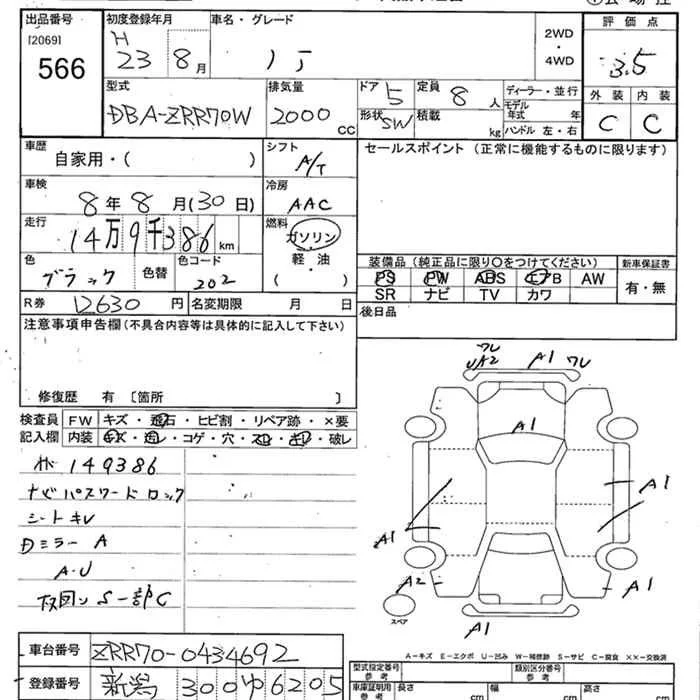 出品番号 初度登録年月 車名・グレード 評価点
[2069] H 2WD
566 23 8月 ・ 3.5
4WD
型式 排気量 ドア 5 定員 8人 ディーラー・並行 外装 内装
DBA-ZRR70W 2000cc 形状 SW 積載 kg モデル年式 年 C C
ハンドル 左・右
車歴 自家用・( ) シフト A/T セールスポイント(正常に機能するものに限ります)
車検 8年8月(30日) 冷房 AAC
走行 14万9千386km 燃料 ガソリン
軽・油
( )
色 ブラック 色替 色コード 202 装備品(純正品に限り〇をつけてください) 新車保証書
PS PW ABS エアB AW 有・無
R券 12630円 名変期限 月 日 SR ナビ TV カワ
注意事項申告欄(不具合内容等は具体的に記入して下さい) 後日品
修復歴 有 [箇所 ]
検査員 FW キズ・飛石・ヒビ割・リペア跡・×要
記入欄 内装 キズ・汚レ・コゲ・穴・スレ・キレ・破レ
149386
ナビパスワードロック
シートキレ
Dミラー A
A・U
下回り S 一部C
ワレ
UA2 A1 ワレ
A1
A1
A1
A2 A1
スペア
A1
A-キズ E-エクボ U-凹み W-補修跡 S-サビ C-腐食 ××-交換済
車台番号 ZRR70-0434692
登録番号 新潟 300 ゆ 6205
型式指定番号 参考 類別区分番号 参考
車庫証明用 参考 長さ cm 幅 cm 高さ cm